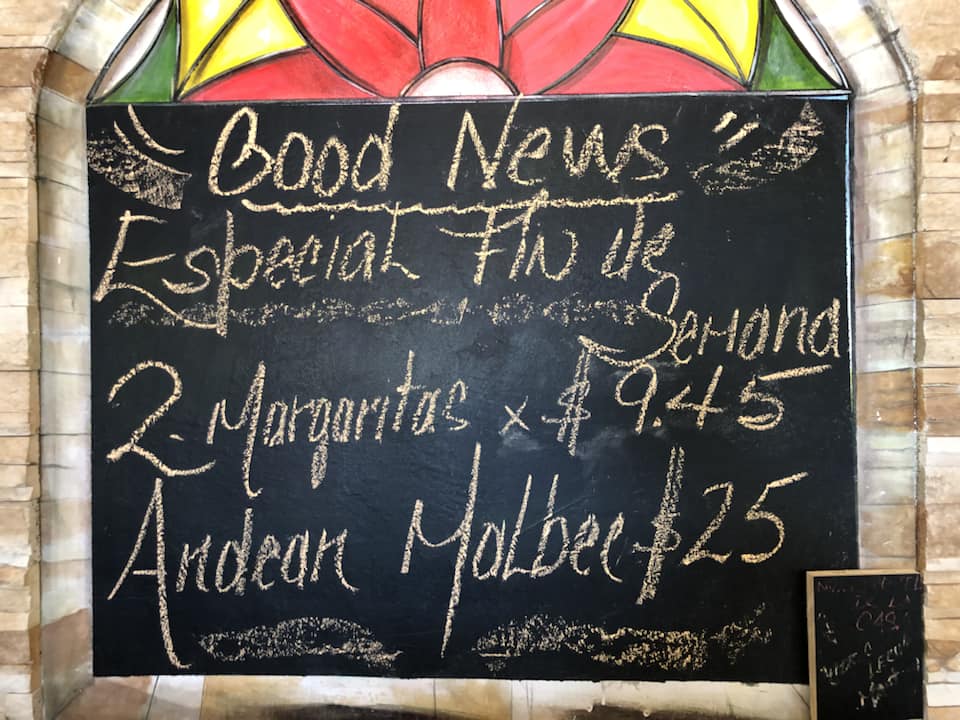 Good News
Especial Fin de
Semana
2. Margaritas x $ 9.45
Andean Malbec $25